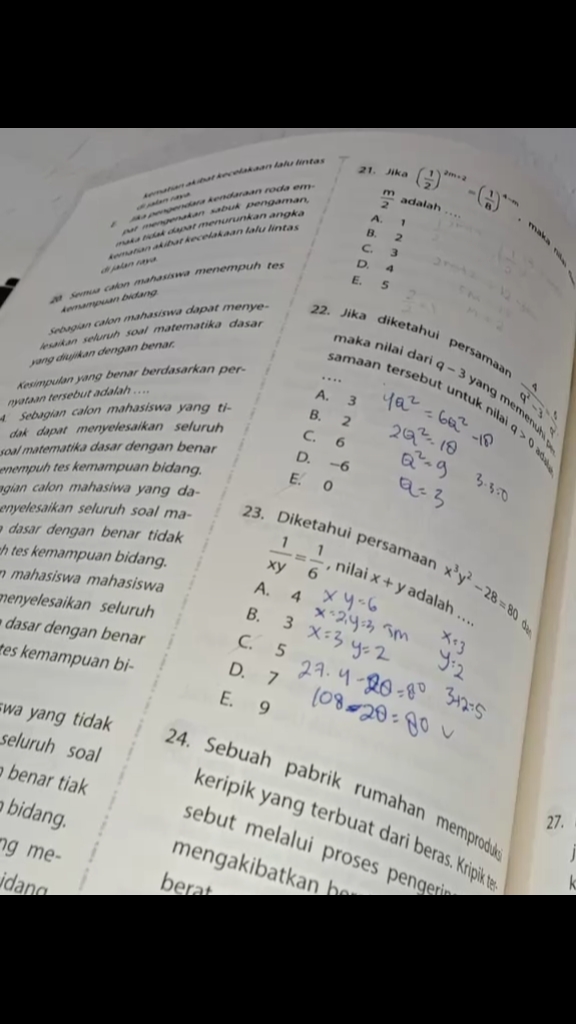 kematian akibat kecelakaan lalu lintas
di jalan raya.
E. Jika pengendara kendaraan roda em-
pat mengenakan sabuk pengaman,
maka tidak dapat menurunkan angka
kematian akibat kecelakaan lalu lintas
di jalan raya.
20. Semua calon mahasiswa menempuh tes
kemampuan bidang.
Sebagian calon mahasiswa dapat menye-
lesaikan seluruh soal matematika dasar
yang diujikan dengan benar.
Kesimpulan yang benar berdasarkan per-
nyataan tersebut adalah ....
A. Sebagian calon mahasiswa yang ti-
dak dapat menyelesaikan seluruh
soal matematika dasar dengan benar
menempuh tes kemampuan bidang.
agian calon mahasiwa yang da-
enyelesaikan seluruh soal ma-
dasar dengan benar tidak
h tes kemampuan bidang.
n mahasiswa mahasiswa
menyelesaikan seluruh
dasar dengan benar
tes kemampuan bi-
wa yang tidak
seluruh soal
benar tiak
bidang.
ng me-
idang
21. Jika (1/2)^2m+2 = (1/8)^4-m, maka nilai
m/2 adalah ....
A. 1
B. 2
C. 3
D. 4
E. 5
22. Jika diketahui persamaan 4/q²-3 = 6/q²
maka nilai dari q – 3 yang memenuhi per-
samaan tersebut untuk nilai q > 0 adalah
....
A. 3
B. 2
C. 6
D. –6
E. 0
4Q² = 6Q² - 18
2Q² = 18
Q² = 9
Q = 3
3-3=0
23. Diketahui persamaan x³y² – 28 = 80 dan
1/xy = 1/6, nilai x + y adalah ....
A. 4
B. 3
C. 5
D. 7
E. 9
x y = 6
x = 2, y = 3
x = 3 y = 2
x = 3
y = 2
27.4 - 28 = 80
3+2=5
108 - 28 = 80 ✓
24. Sebuah pabrik rumahan memproduksi
keripik yang terbuat dari beras. Kripik ter-
sebut melalui proses pengerin
mengakibatkan
berat
27.
j
k